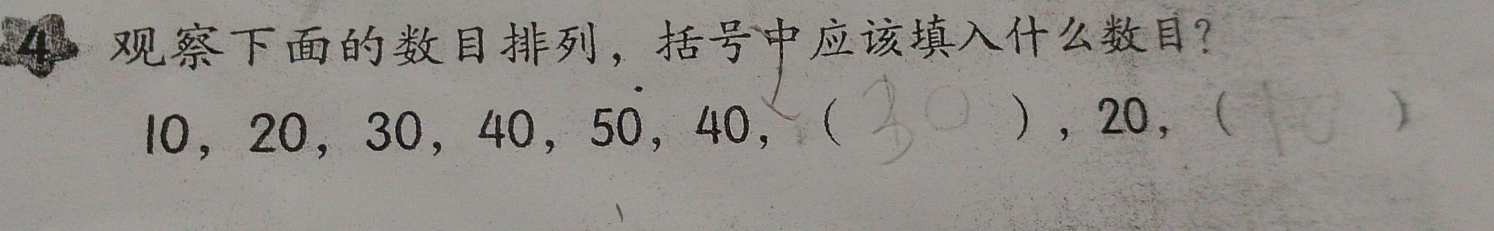 4 观察下面的数目排列，括号中应该填入什么数目？
10，20，30，40，50，40，（ 30 ），20，（ 10 ）